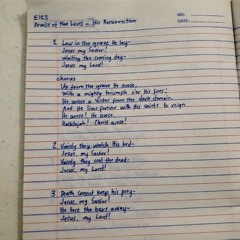 E123
NO:
DATE:
Praise of the Lord – His Resurrection
1. Low in the grave He lay–
Jesus, my Savior!
Waiting the coming day–
Jesus, my Lord!
chorus
Up from the grave He arose,
With a mighty triumph o'er His foes;
He arose a Victor from the dark domain,
And He lives forever with His saints to reign.
He arose! He arose!
Hallelujah! Christ arose!
2. Vainly they watch His bed–
Jesus, my Savior!
Vainly they seal the dead–
Jesus, my Lord!
3. Death cannot keep his prey–
Jesus, my Savior!
He tore the bars away–
Jesus, my Lord!